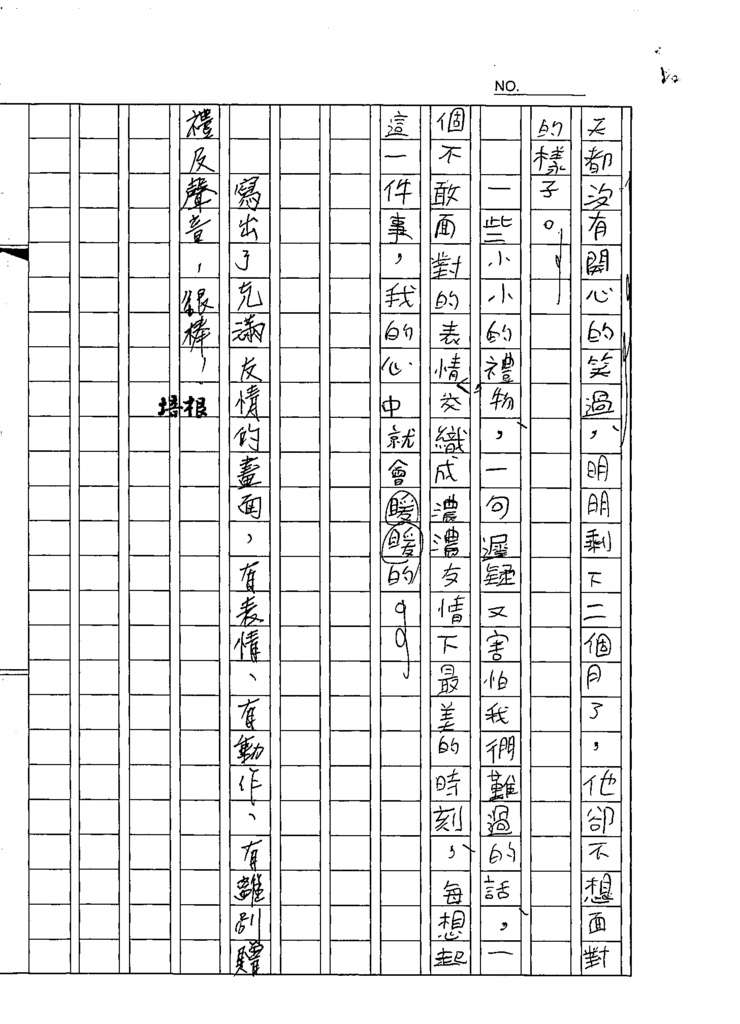 NO.
天都沒有開心的笑過，明明剩下二個月了，他卻不想面對
的樣子。
一些小小的禮物，一句遲疑又害怕我們難過的話，一
個不敢面對的表情交織成濃濃友情下最美的時刻，每想起
這一件事，我的心中就會暖暖的。
寫出了充滿友情的畫面，有表情、有動作、有離別贈
禮及聲音，很棒！
培根